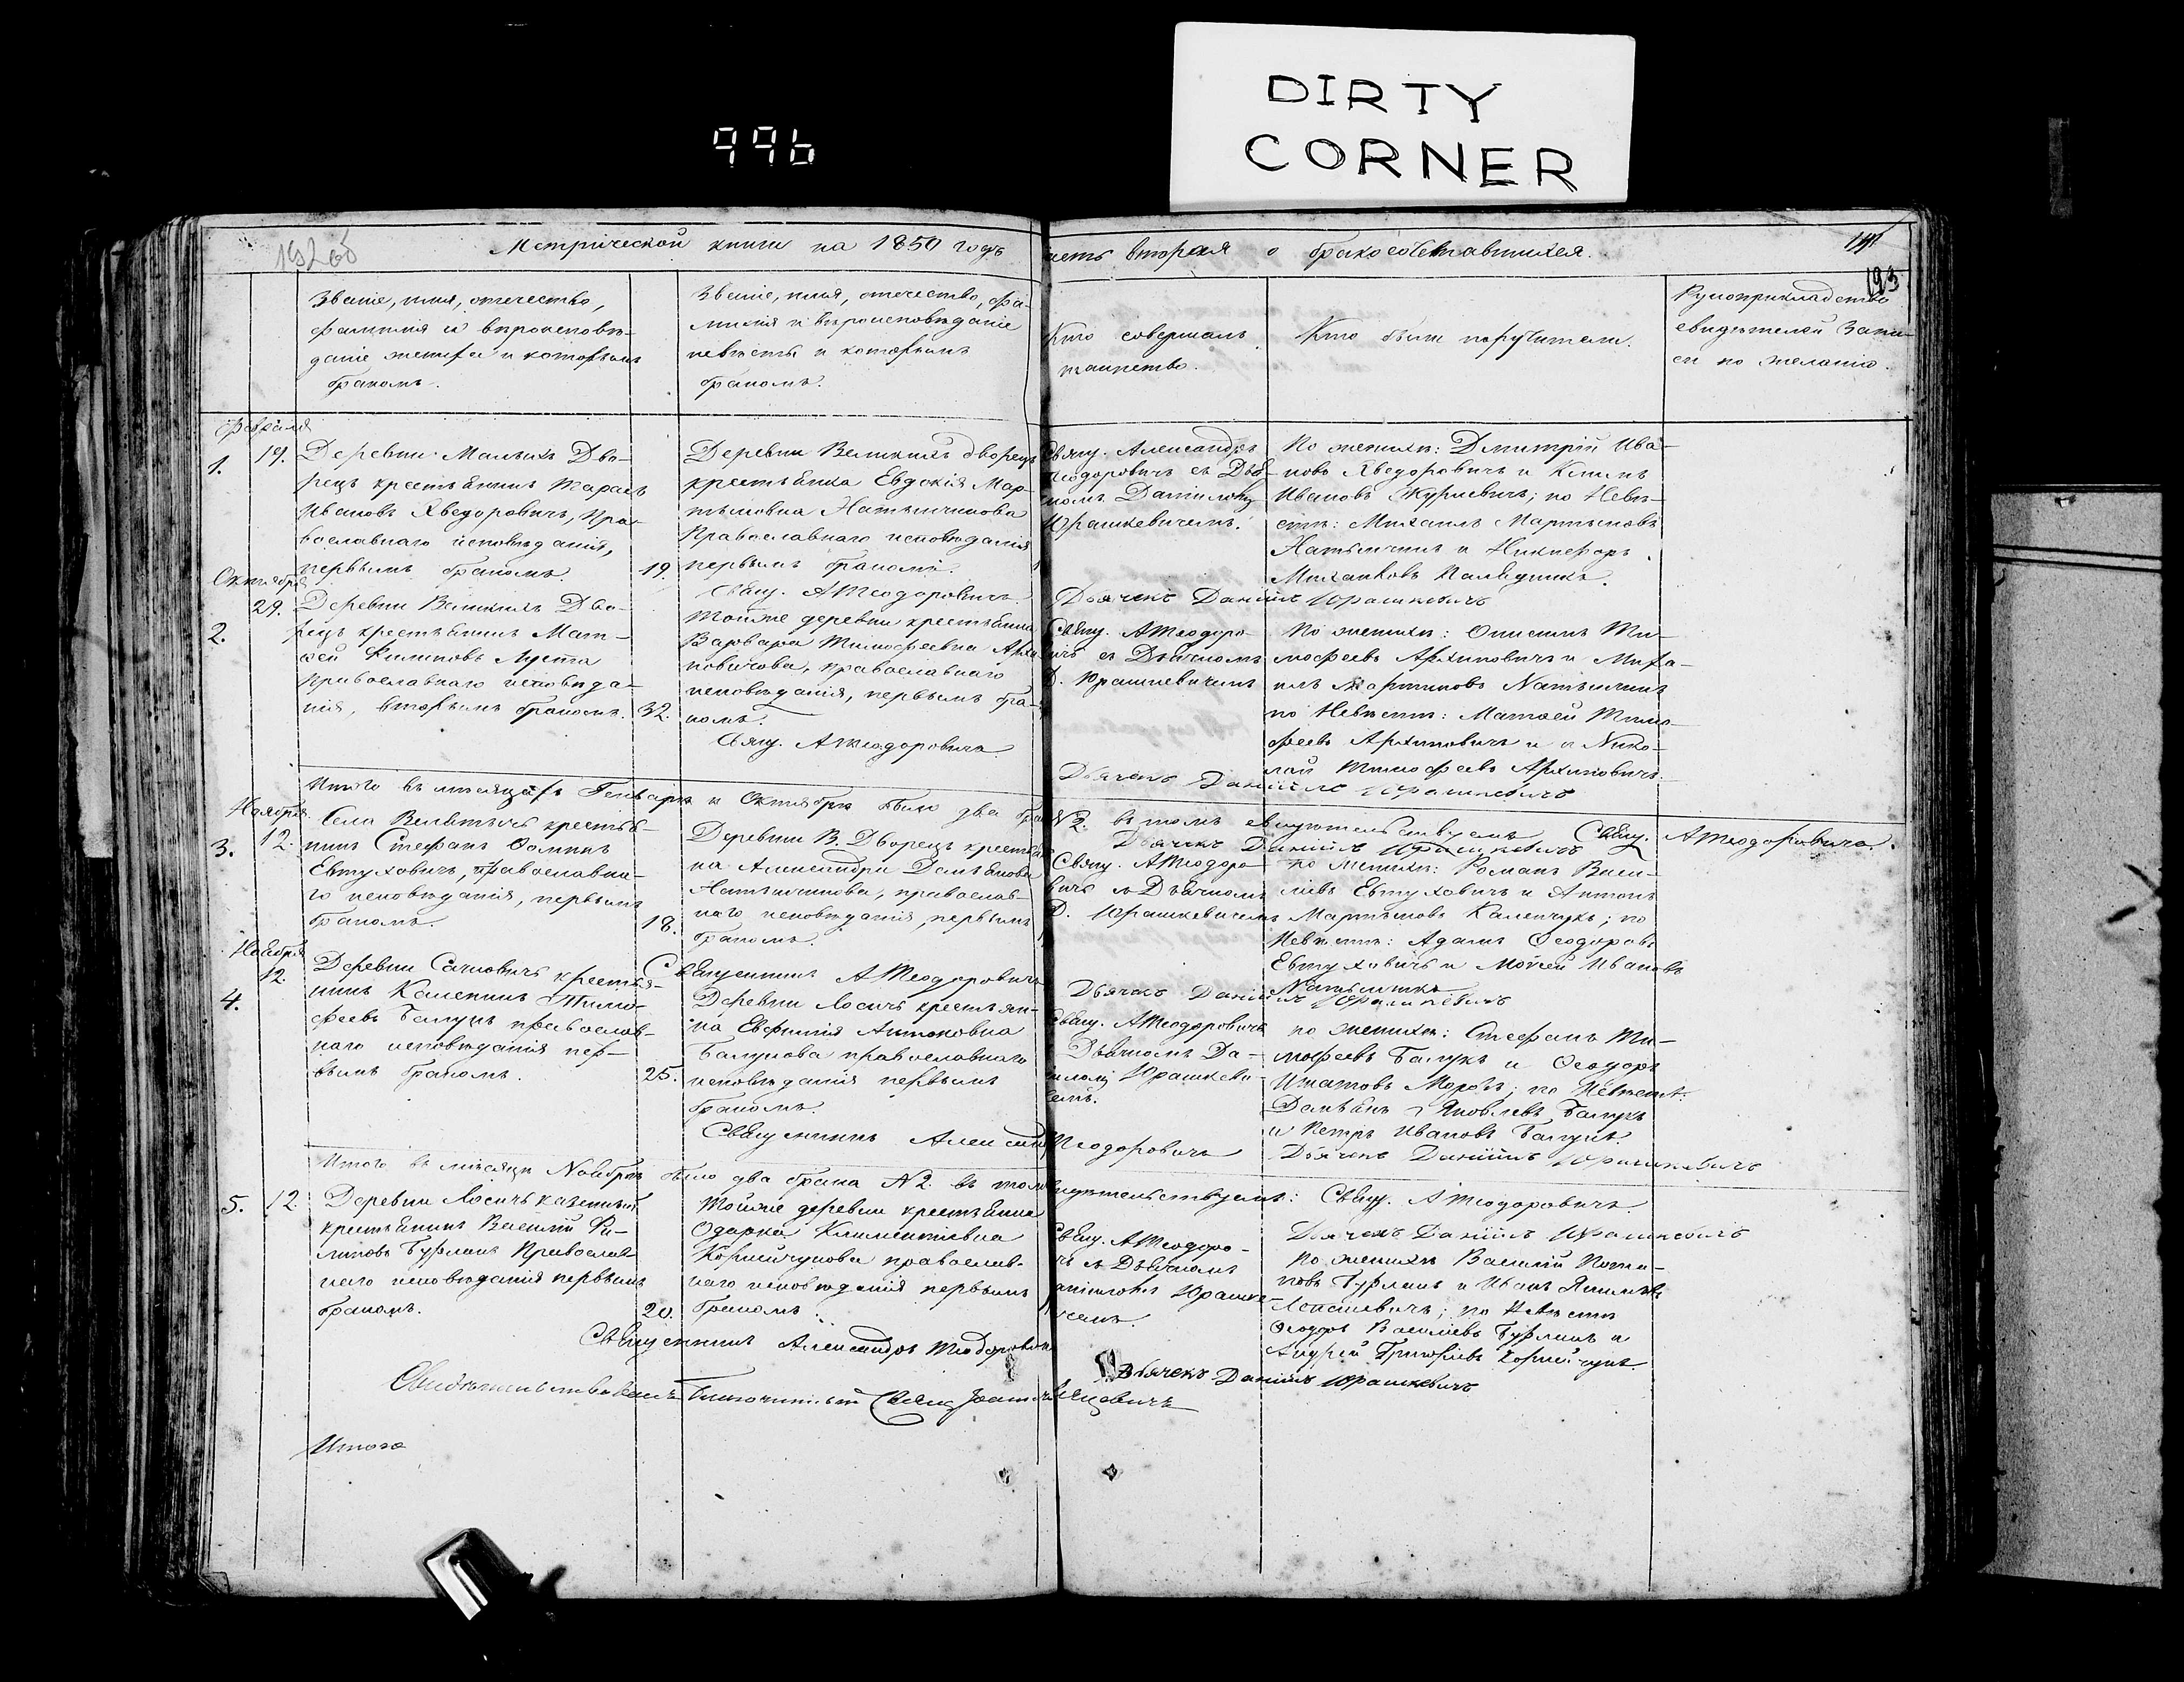 DIRTY
CORNER
996
192 об
Метрической книги на 1850 годъ
часть вторая о бракосочетавшихся.
193
Званіе, имя, отечество,
фамилія и вѣроисповѣ-
даніе жениха и которымъ
бракомъ.
Званіе, имя, отечество, фа-
милія и вѣроисповѣданіе
невѣсты и которымъ
бракомъ.
Кто совершалъ
таинство.
Кто были поручители.
Рукоприкладство
свидѣтелей запи-
си по желанію.
Февраля
1.
19.
Деревни Малыхъ Дво-
рецъ крестьянинъ Тарасъ
Ивановъ Хведоровичъ, Пра-
вославнаго исповѣданія,
первымъ бракомъ.
19.
Деревни Великихъ дворецъ
крестьянка Евдокія Мар-
тыновна Натынчикова
Православнаго исповѣданія
первымъ бракомъ.
Свящ. АТеодоровичъ
Свящ. Александръ
Теодоровичъ съ Дья-
комъ Даниломъ
Юрашкевичемъ.
По женихѣ: Дмитрій Ива-
новъ Хведоровичъ и Климъ
Ивановъ Журневичъ; по Невѣ-
стѣ: Михаилъ Мартыновъ
Натынчикъ и Никифоръ
Михайловъ
Дьячекъ Даніилъ Юрашкевичъ
Октября
2.
29.
Деревни Великихъ Дво-
рецъ крестьянинъ Мат-
ѳей Филиповъ Луста
Православнаго исповѣда-
нія, вторымъ бракомъ.
32.
Тойже деревни крестьянка
Варвара Тимофеевна Архи-
повичова, православнаго
исповѣданія, первымъ бра-
комъ.
Свящ. АТеодоровичъ
Свящ. АТеодоро-
вичъ съ Дьячкомъ
Д. Юрашкевичемъ
По женихѣ: Онисимъ Ти-
мофеевъ Архиповичъ и Миха-
илъ Мартиновъ Натынчикъ
по Невѣстѣ: Матѳей Тимо-
феевъ Архиповичъ и Нико-
лай Тимофеевъ Архиповичъ
Дьячекъ Даніилъ Юрашкевичъ
Итого въ мѣсяцахъ Генварѣ и Октябрѣ было два брака
№ 2. въ томъ свидѣтельствуемъ Свящ. АТеодоровичъ.
Дьячекъ Даніилъ Юрашкевичъ
Ноября
3.
12.
Села Велятычъ крестья-
нинъ Стефанъ Ѳоминъ
Евтуховичъ, православна-
го исповѣданія, первымъ
бракомъ.
18.
Деревни В. Дворецъ крестьян-
ка Александра Демьянова
Натынчикова, православ-
наго исповѣданія, первымъ
бракомъ.
Священникъ АТеодоровичъ
Свящ. АТеодоро
вичъ съ Дьячкомъ
Д. Юрашкевичемъ
по женихѣ: Романъ Васи-
лiевъ Евтуховичъ и Антонъ
Мартыновъ Каленчукъ; по
Невѣстѣ: Адамъ Ѳеодоровъ
Евтуховичъ и Мойсей Ивановъ
Натынчикъ
Дьячекъ Даніилъ Юрашкевичъ
Ноября
4.
12.
Деревни Сачковичъ крестья-
нинъ Каленикъ Тимо-
феевъ Балукъ православ-
наго исповѣданія пер-
вымъ бракомъ.
25.
Деревни Лосичъ крестьян-
ка Евфимія Антоновна
Балукова православнаго
исповѣданія первымъ
бракомъ.
Священникъ Александръ Теодоровичъ
Свящ. АТеодоровичъ
Дьячкомъ Да-
ниломъ Юрашкеви-
чемъ.
по женихѣ: Стефанъ Ти-
мофеевъ Балукъ и Ѳеодоръ
Игнатовъ Морозъ; по Невѣстѣ:
Демьянъ Яковлевъ Балукъ
и Петръ Ивановъ Балукъ.
Дьячекъ Даніилъ Юрашкевичъ
Итого въ мѣсяцѣ Ноябрѣ было два брака № 2. въ томъ
свидѣтельствуемъ: Свящ. АТеодоровичъ
Дьячекъ Даніилъ Юрашкевичъ
5.
12
Деревни Лосичъ казенный
крестьянинъ Василій Фи-
липовъ Бурлакъ Православ-
наго исповѣданія первымъ
бракомъ.
20.
Тойже деревни крестьянка
Одарка Климентіевна
Корнейчукова православ-
наго исповѣданія первымъ
бракомъ.
Священникъ Александръ Теодоровичъ
Свящ. АТеодоро-
вичъ съ Дьячкомъ
Даниломъ Юрашке-
вичемъ.
По женихѣ Василій Пота-
повъ Бурлакъ и Иванъ
по Невѣстѣ
Ѳеодоръ Василіевъ Бурлакъ и
Андрей Григорiевъ Корнейчукъ
Дьячекъ Даніилъ Юрашкевичъ
Свидѣтельствовалъ Благочинный Священ
Итого